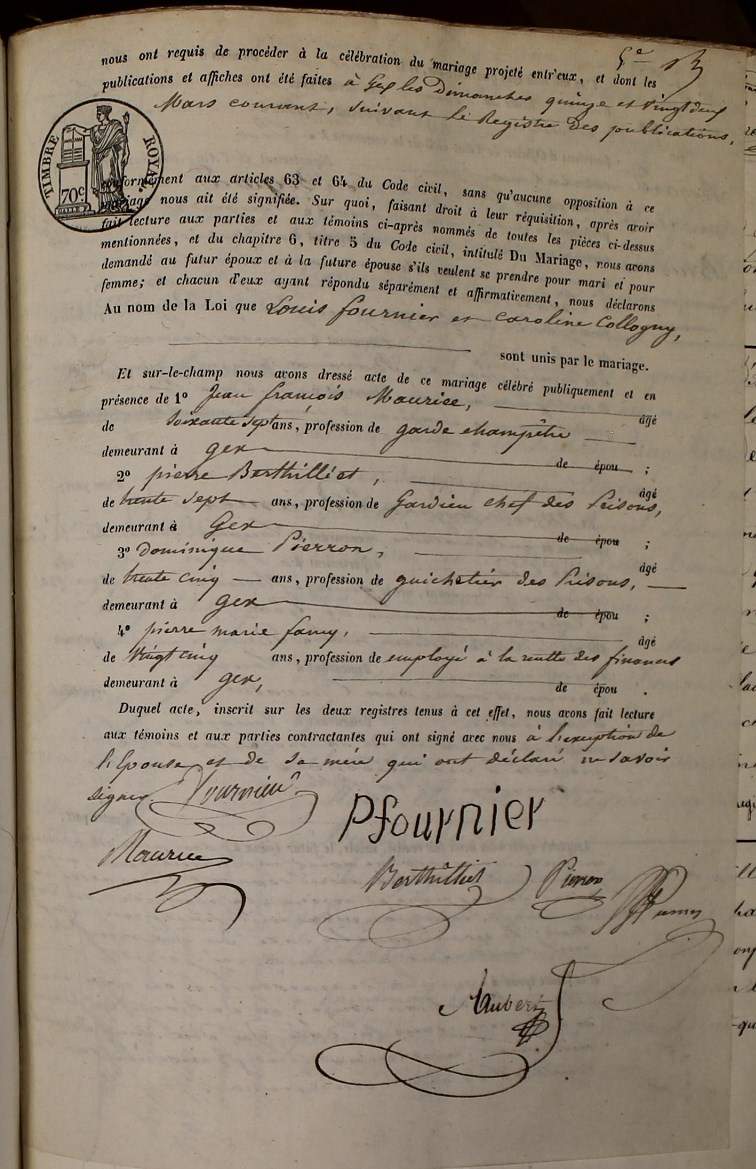 5e
nous ont requis de procéder à la célébration du mariage projeté entr'eux, et dont les
publications et affiches ont été faites à Gex les Dimanches quinze et vingt deux
Mars courant, suivant le Registre des publications,
TIMBRE ROYAL
70c
conformément aux articles 63 et 64 du Code civil, sans qu'aucune opposition à ce
mariage nous ait été signifiée. Sur quoi, faisant droit à leur réquisition, après avoir
fait lecture aux parties et aux témoins ci-après nommés de toutes les pièces ci-dessus
mentionnées, et du chapitre 6, titre 5 du Code civil, intitulé Du Mariage, nous avons
demandé au futur époux et à la future épouse s'ils veulent se prendre pour mari et pour
femme; et chacun d'eux ayant répondu séparément et affirmativement, nous déclarons
Au nom de la Loi que Louis fournier et Caroline Collogny,
sont unis par le mariage.
Et sur-le-champ nous avons dressé acte de ce mariage célébré publiquement et en
présence de 1° Jean françois Maurice, âgé
de soixante sept ans, profession de garde champêtre
demeurant à gex de épou ;
2° pierre Berthilliet, âgé
de trente sept ans, profession de Gardien chef des Prisons,
demeurant à Gex de épou ;
3° Dominique Pierron, âgé
de trente cinq ans, profession de guichetier des Prisons,
demeurant à gex de épou ;
4° pierre marie famy, âgé
de vingt cinq ans, profession de employé à la recette des finances
demeurant à gex, de épou .
Duquel acte, inscrit sur les deux registres tenus à cet effet, nous avons fait lecture
aux témoins et aux parties contractantes qui ont signé avec nous à l'exception de
l'Epouse et de sa mère qui ont déclaré ne savoir
signer. Fournier
Pfournier
Maurice
Berthilliet Pierron
Aubert